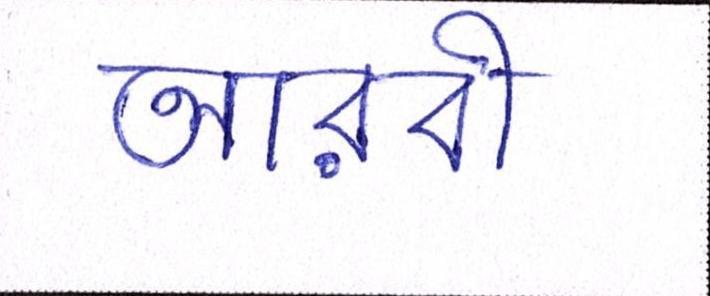 আরবী